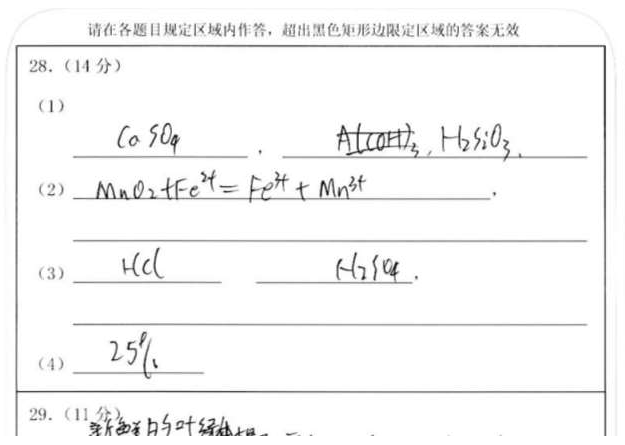 请在各题目规定区域内作答，超出黑色矩形边限定区域的答案无效
28.（14分）
（1）
CaSO4 . Al(OH)3, H2SiO3.
（2） MnO2+Fe2+=Fe3++Mn3+ .
（3） HCl H2SO4.
（4） 25%
29.（11分）